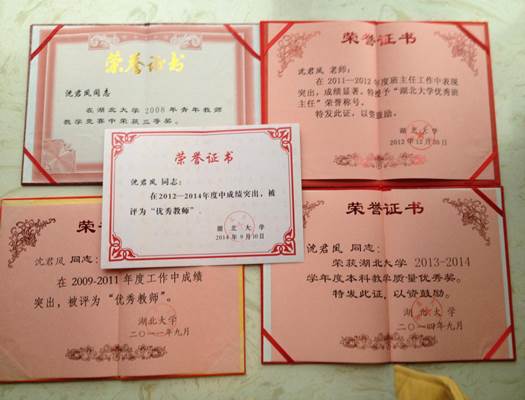 荣誉证书
沈君凤同志
在湖北大学2008年青年教师
教学竞赛中荣获三等奖。
荣誉证书
沈君凤 老师:
在2011—2012年度班主任工作中表现
突出,成绩显著。特授予“湖北大学优秀班
主任”荣誉称号。
特发此证,以资鼓励。
湖北大学
荣誉证书
沈君凤 同志:
在2012—2014年度中成绩突出,被
评为“优秀教师”.
湖北大学
2014年9月10日
荣誉证书
沈君凤 同志:
在2009-2011年度工作中成绩
突出,被评为“优秀教师”。
湖北大学
二〇一一年九月
荣誉证书
沈君凤 同志:
荣获湖北大学 2013-2014
学年度本科教学质量优秀奖。
特发此证,以资鼓励。
湖北大学
二〇一四年九月